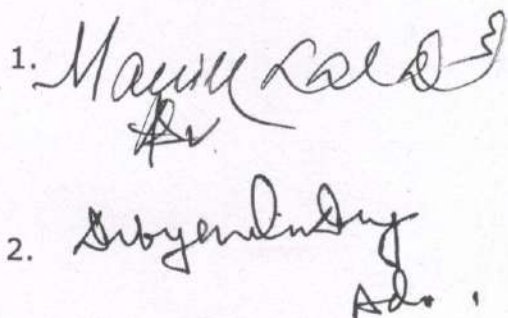 1. Manik Lal De
Adv
2. Dibyendu Dey
Adv.